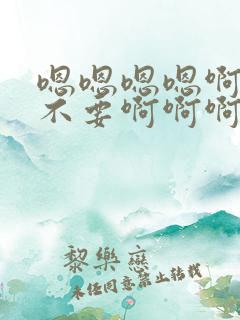 嗯嗯嗯嗯啊
不要啊啊啊
黎樂戀
未经同意禁止转载